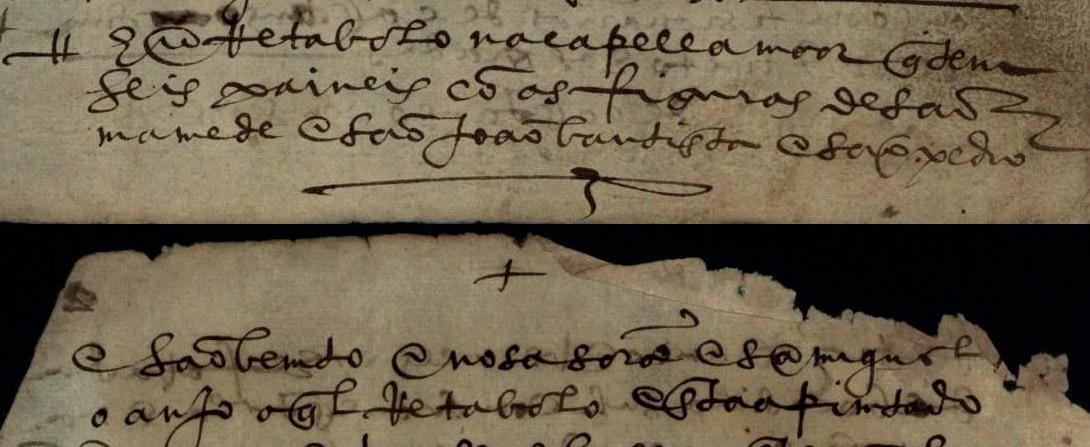 hũ Retabolo na capella moor q̃ tem
seis paineis cõ as figuras de saõ
mamede e saõ Joaõ bautista e saõ pedro
e saõ bento e nosa sorã e sã miguel
o anjo o ql Retabolo esta a pintado